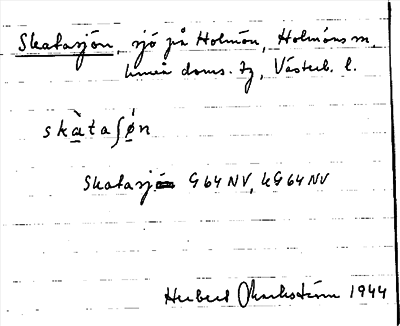 Skatasjön, sjö på Holmön, Holmöns sn,
Umeå doms. tg, Västerb. l.
skàtaʃø̀n
Skatasjö G 64 NV, kG 64 NV
Herbert Markström 1944